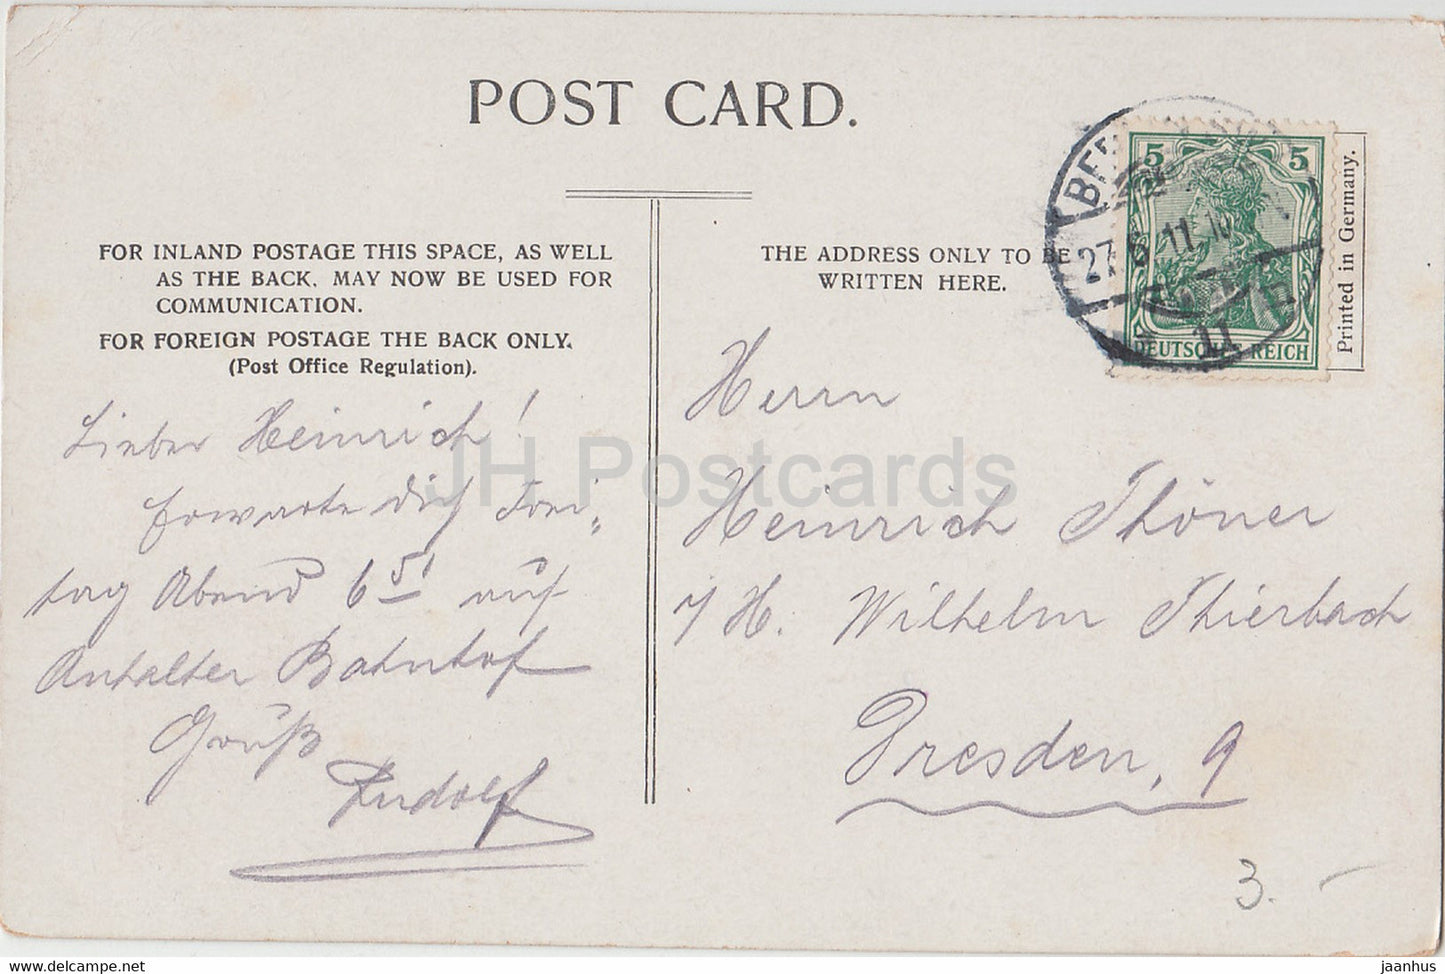 POST CARD.
FOR INLAND POSTAGE THIS SPACE, AS WELL
AS THE BACK, MAY NOW BE USED FOR
COMMUNICATION.
FOR FOREIGN POSTAGE THE BACK ONLY.
(Post Office Regulation).
Lieber Heinrich!
Erwarte dich Frei-
tag Abend 6 51 auf
Anhalter Bahnhof
Gruß
Rudolf
THE ADDRESS ONLY TO BE
WRITTEN HERE.
5 5
DEUTSCHES REICH
27.6.11. 
11
Printed in Germany.
Herrn
Heinrich Thöner
i/H. Wilhelm Thierbach
Dresden, 9
3. –
JH Postcards
www.delcampe.net
jaanhus